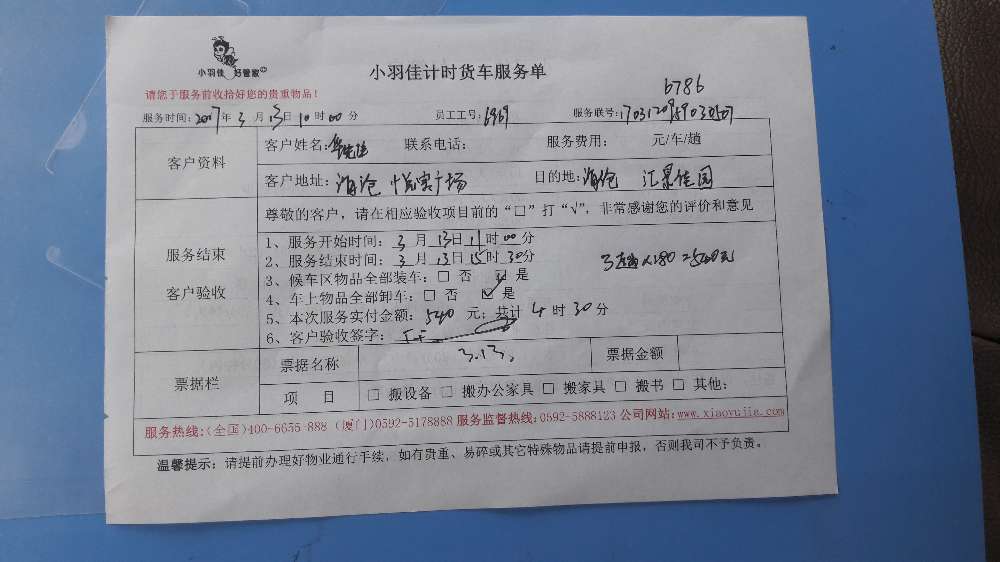 小羽佳 好管家
小羽佳计时货车服务单
6786
请您于服务前收拾好您的贵重物品！
服务时间：2017年 3 月 13日 10时00分 员工工号：6969 服务联号：
客户资料
客户姓名： 联系电话： 服务费用： 元/车/趟
客户地址：海沧 悦实广场 目的地：海沧 汇景佳园
尊敬的客户，请在相应验收项目前的“□”打“√”，非常感谢您的评价和意见
服务结束
客户验收
1、服务开始时间：3 月 13日 11时 00分
2、服务结束时间：3 月 13日 15时 30分
3、候车区物品全部装车：□ 否 ☑ 是
4、车上物品全部卸车：□ 否 ☑ 是
5、本次服务实付金额：540 元；共计 4 时 30 分
6、客户验收签字：
3 180=540元
3.13.
票据栏
票据名称 票据金额
项 目 □ 搬设备 □ 搬办公家具 □ 搬家具 □ 搬书 □ 其他：
服务热线：（全国）400-6655-888 （厦门）0592-5178888 服务监督热线：0592-5888123 公司网站：www.xiaoyujia.com
温馨提示：请提前办理好物业通行手续，如有贵重、易碎或其它特殊物品请提前申报，否则我司不予负责。